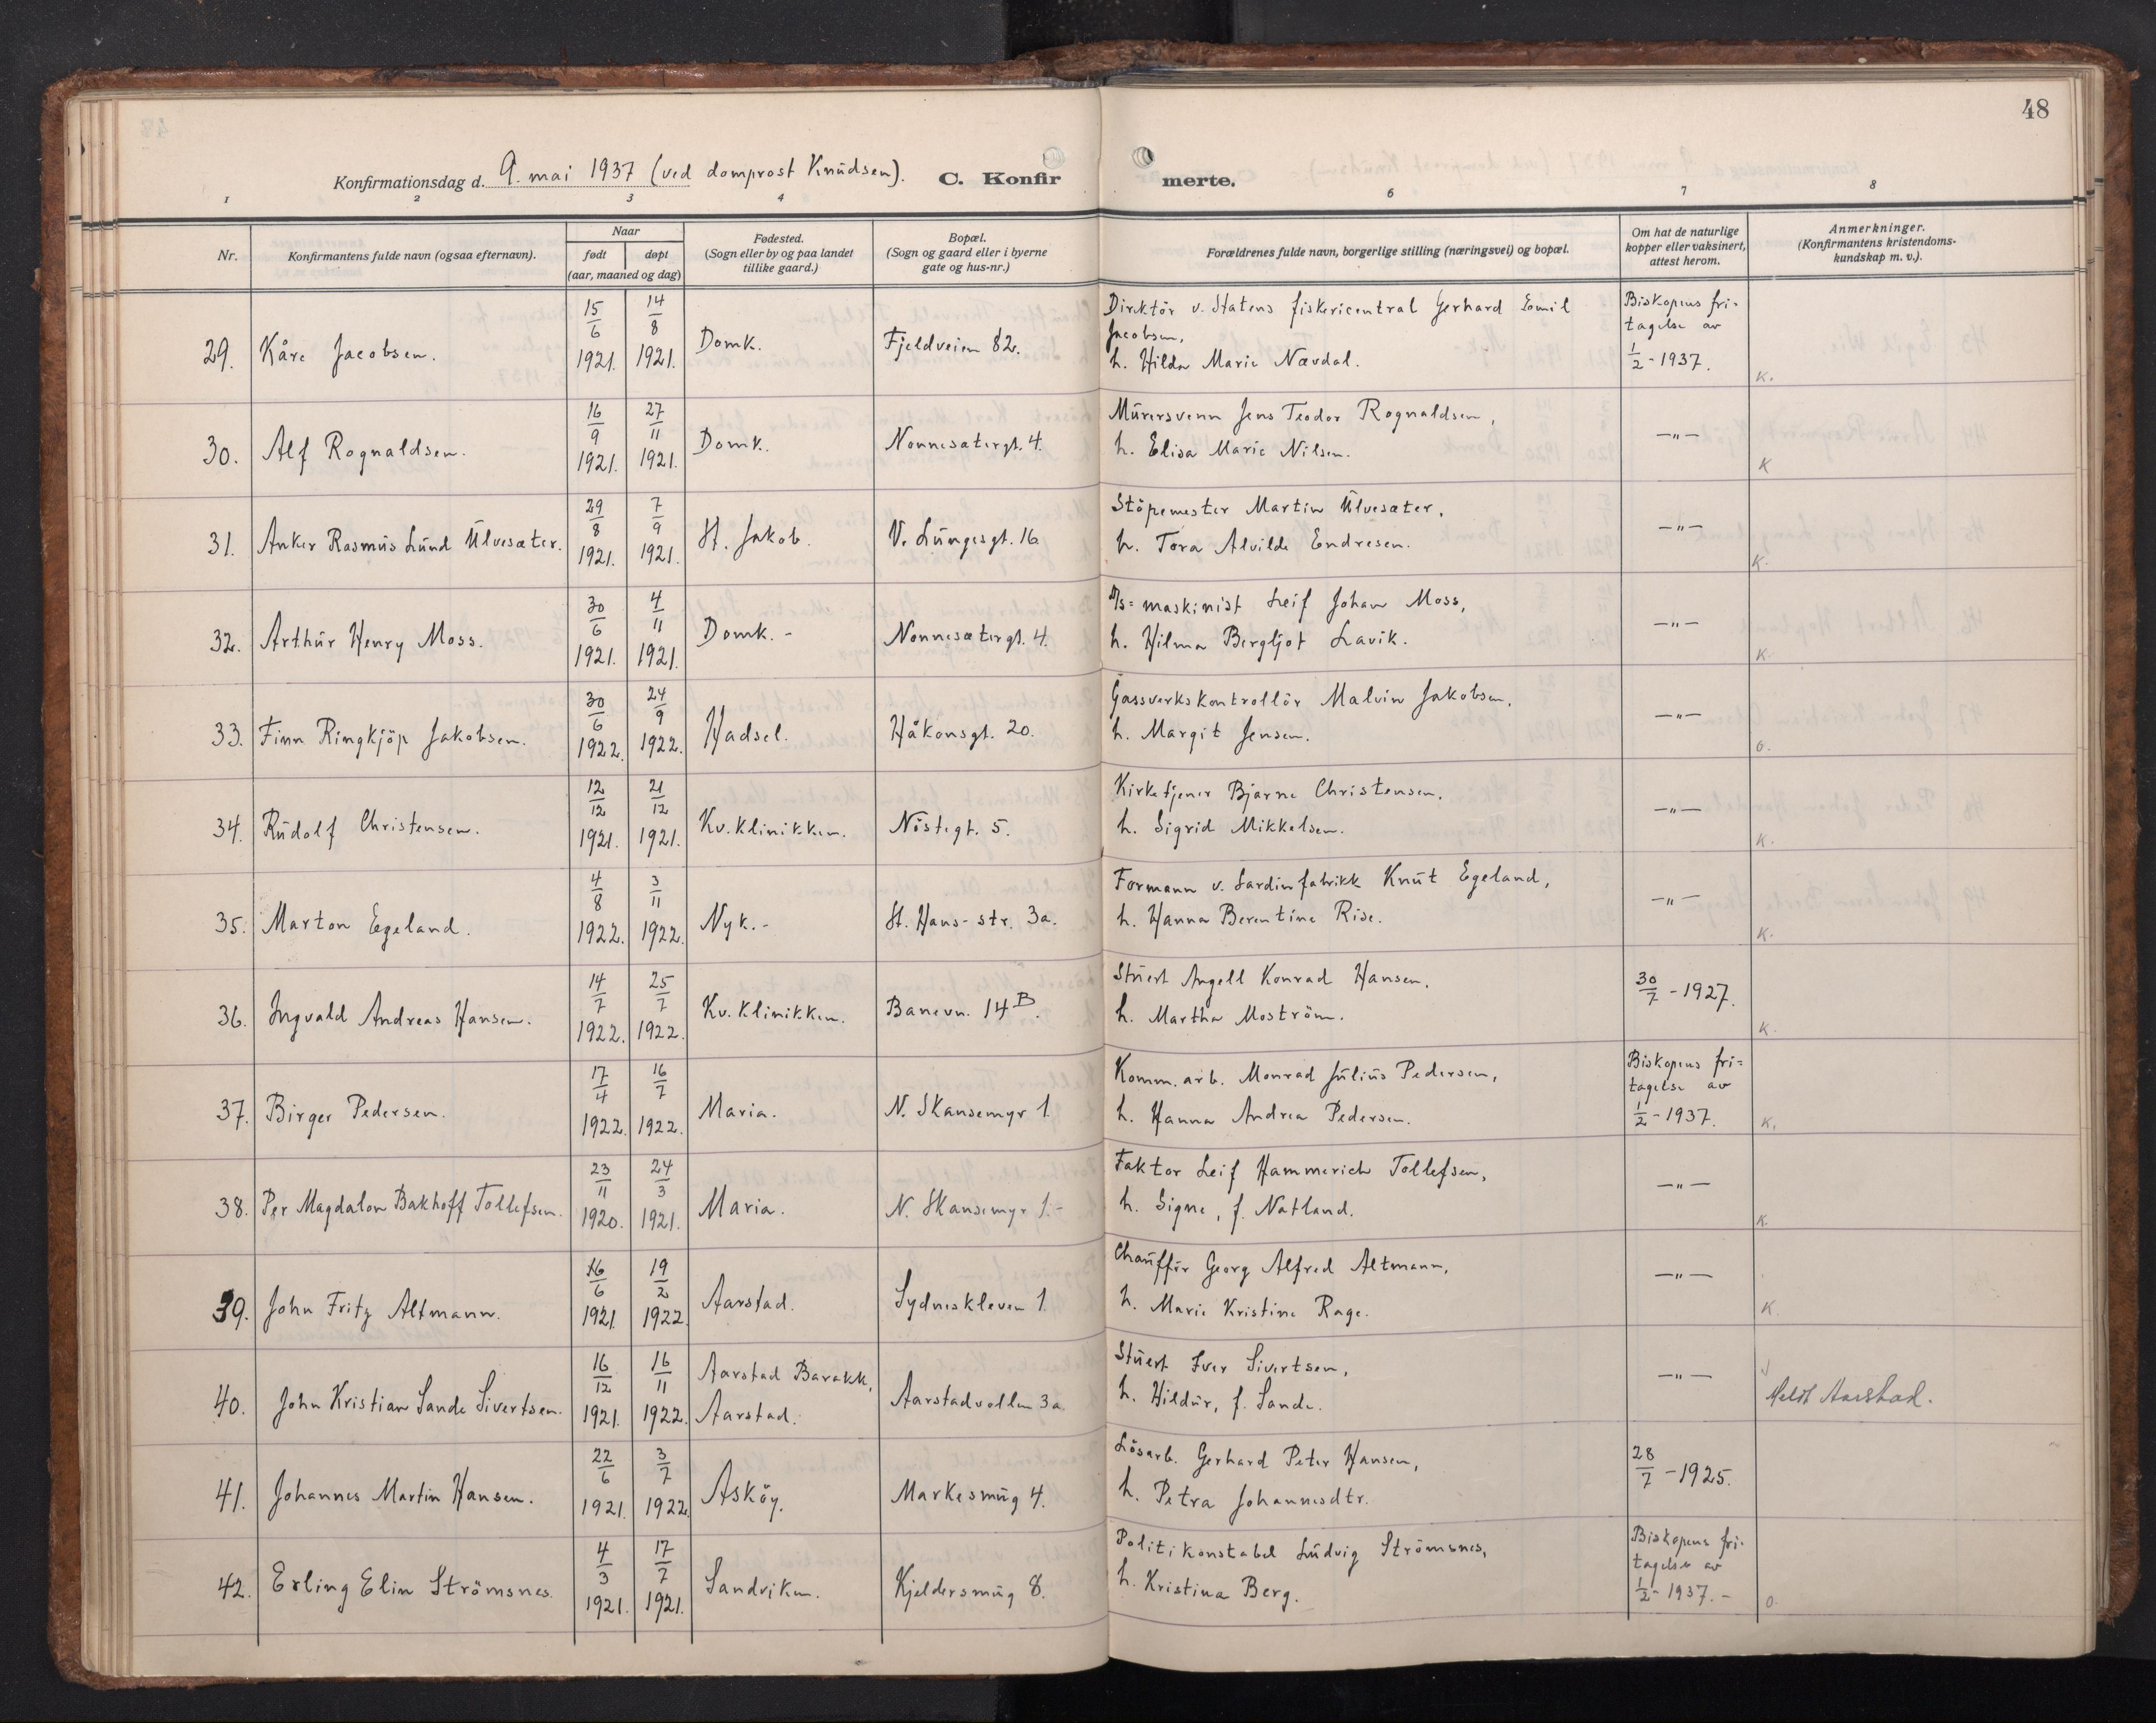 48
Konfirmationsdag d. 9. mai 1937 (ved domprost Knudsen). C. Konfirmerte.
1 2 3 4 6 7 8
Nr.
Konfirmantens fulde navn (ogsaa efternavn).
Naar
født døpt
(aar, maaned og dag)
Fødested.
(Sogn eller by og paa landet
tillike gaard.)
Bopæl.
(Sogn og gaard eller i byerne
gate og hus-nr.)
Forældrenes fulde navn, borgerlige stilling (næringsvei) og bopæl.
Om hat de naturlige
kopper eller vaksinert,
attest herom.
Anmerkninger.
(Konfirmantens kristendoms-
kundskap m. v.).
29. Kåre Jacobsen. 15/6 1921. 14/8 1921. Domk. Fjeldveien 82.
Direktör v. Statens fiskericentral Gerhard Emil
Jacobsen,
h. Hilda Marie Nævdal.
Biskopens fri=
tagelse av
1/2 - 1937.
K.
30. Alf Rognaldsen. 16/9 1921. 27/11 1921. Domk. Nonnesætergt. 4.
Murersvenn Jens Teodor Rognaldsen,
h. Elisa Marie Nilsen.
—"—
K
31. Anker Rasmus Lund Ulvesæter. 29/8 1921. 7/9 1921. St. Jakob. V. Lungesgt. 16
Stöpemester Martin Ulvesæter,
h. Tora Alvilde Endresen.
—"—
K.
32. Arthur Henry Moss. 30/6 1921. 4/11 1921. Domk. - Nonnesætergt. 4.
maskinist Leif Johan Moss,
h. Hilma Bergljot Lavik.
—"—
K.
33. Finn Ringkjöp Jakobsen. 30/6 1922. 24/9 1922. Hadsel. Håkonsgt. 20.
Gassverkskontrollör Malvin Jakobsen,
h. Margit Jensen.
—"—
o.
34. Rudolf Christensen. 12/12 1921. 21/12 1921. Kv. Klinikken. Nöstegt. 5.
Kirketjener Bjarne Christensen,
h. Sigrid Mikkelsen.
—"—
K.
35. Marton Egeland. 4/8 1922. 3/11 1922. Nyk. - St. Hans-str. 3a.
Formann v. Sardinfabrikk Knut Egeland,
h. Hanna Berentine Rise.
—"—
K.
36. Ingvald Andreas Hansen. 14/7 1922. 25/7 1922. Kv. Klinikken. Banevn. 14 B.
Stuert Angell Konrad Hansen,
h. Martha Moström.
30/7 - 1927.
K.
37. Birger Pedersen. 17/4 1922. 16/7 1922. Maria. N. Skansemyr 1.
Komm. arb. Monrad Julius Pedersen,
h. Hanna Andrea Pedersen.
Biskopens fri=
tagelse av
1/2 - 1937.
K.
38. Per Magdalon Bakhoff Tollefsen. 23/11 1920. 24/3 1921. Maria. N. Skansemyr 1.-
Faktor Leif Hammerich Tollefsen,
h. Signe, f. Natland.
—"—
K.
39. John Fritz Altmann. 16/6 1921. 19/2 1922. Aarstad. Sydneskleven 1.
Chaufför Georg Alfred Altmann,
h. Marie Kristine Rage.
—"—
K.
40. John Kristian Sande Sivertsen. 16/12 1921. 16/11 1922. Aarstad Barakk, Aarstad. Aarstadvollen 3a.
Stuert Iver Sivertsen,
h. Hildur, f. Sande.
—"—
Meldt Aarstad.
41. Johannes Martin Hansen. 22/6 1921. 3/7 1922. Asköy. Markesmug 4.
Lösarb. Gerhard Peter Hansen,
h. Petra Johannesdtr.
28/7 - 1925.
42. Erling Elin Strömsnes. 4/3 1921. 17/7 1921. Sandviken. Kjeldersmug 8.
Politikonstabel Ludvig Strömsnes,
h. Kristina Berg.
Biskopens fri-
tagelse av
1/2 - 1937. -
o.